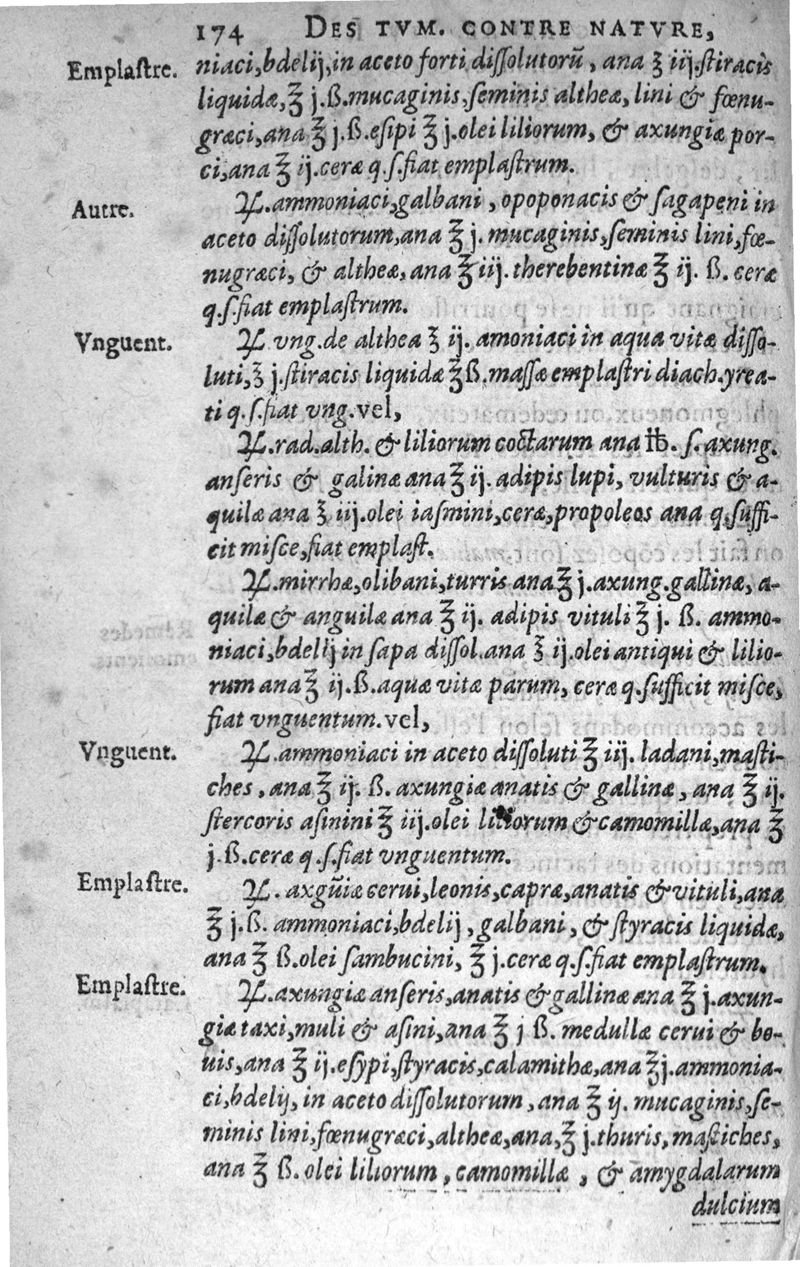 174 DES TVM. CONTRE NATVRE,
Emplastre. niaci,bdelij,in aceto forti dissolutorũ, ana ℥ iij.stiracis
liquidæ,℥ j.ß.mucaginis,seminis altheæ, lini & fœnu-
græci,ana ℥ j.ß.esipi ℥ j.olei liliorum, & axungiæ por-
ci,ana ℥ ij.ceræ q.s.fiat emplastrum.
Autre. ♃.ammoniaci,galbani, opoponacis & sagapeni in
aceto dissolutorum,ana ℥ j. mucaginis,seminis lini,fœ-
nugræci, & altheæ, ana ℥ iij. therebentinæ ℥ ij. ß. ceræ
q.s.fiat emplastrum.
Vnguent. ♃.vng.de althea ℥ ij. amoniaci in aqua vitæ disso-
luti,℥ j.stiracis liquidæ ℥ß.massæ emplastri diach.yrea-
ti q.s.fiat vng.vel,
♃.rad.alth. & liliorum coctarum ana ℔. s.axung.
anseris & galinæ ana ℥ ij. adipis lupi, vulturis & a-
quilæ ana ℥ iij.olei iasmini,ceræ,propoleos ana q.suffi-
cit misce,fiat emplast.
♃.mirrhæ,olibani,turris ana℥ j.axung.gallinæ, a-
quilæ & anguilæ ana ℥ ij. adipis vituli ℥ j. ß. ammo-
niaci,bdelij in sapa dissol.ana ℥ ij.olei antiqui & lilio-
rum ana ℥ ij.ß.aquæ vitæ parum, ceræ q.sufficit misce,
fiat vnguentum.vel,
Vnguent. ♃.ammoniaci in aceto dissoluti ℥ iij. ladani,masti-
ches, ana ℥ ij. ß. axungiæ anatis & gallinæ, ana ℥ ij.
stercoris asinini ℥ iij.olei liliorum & camomillæ,ana ℥
j.ß.ceræ q.s.fiat vnguentum.
Emplastre. ♃. axgũiæ cerui,leonis,capræ,anatis & vituli,ana
℥ j.ß. ammoniaci,bdelij, galbani, & styracis liquidæ,
ana ℥ ß.olei sambucini, ℥ j.ceræ q.s.fiat emplastrum.
Emplastre. ♃.axungiæ anseris,anatis & gallinæ ana ℥ j.axun-
giæ taxi,muli & asini, ana ℥ j ß. medullæ cerui & bo-
uis,ana ℥ ij.esypi,styracis,calamithæ,ana ℥j.ammonia-
ci,bdelij, in aceto dissolutorum, ana ℥ ij. mucaginis,se-
minis lini,fœnugræci,altheæ,ana,℥ j.thuris, mastiches,
ana ℥ ß.olei liliorum, camomillæ, & amygdalarum
dulcium